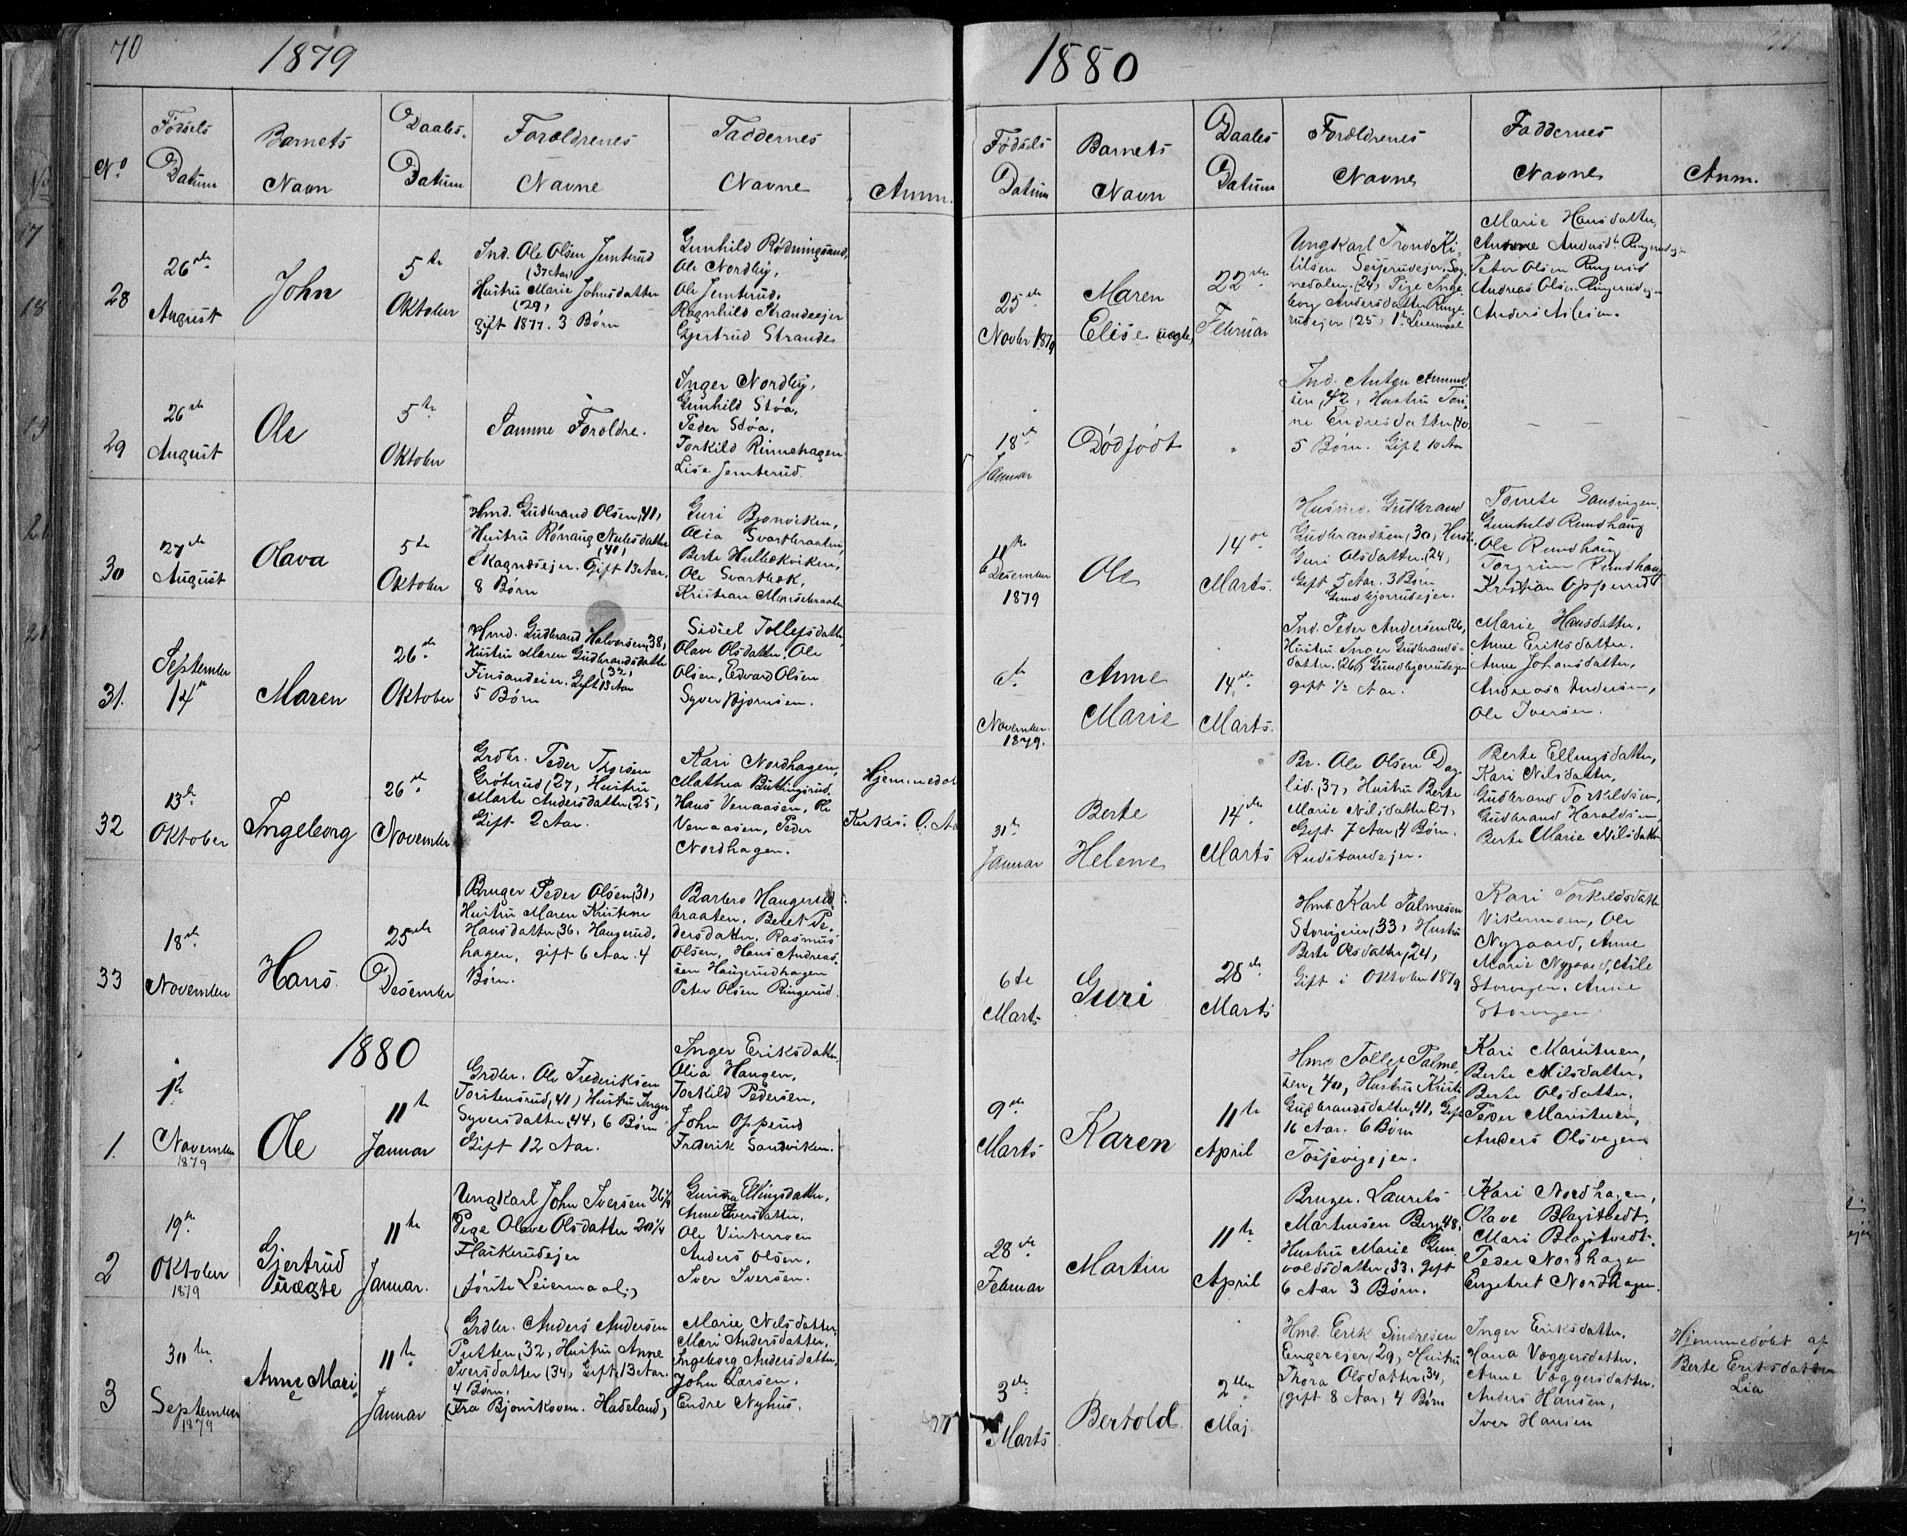 70
1879
No
Fødsels
Datum
Barnets
Navn
Daabs.
Datum
Forældrenes
Navne
Faddernes
Navne
Anm.
28
26de
August
John
5te
Oktober
Ind. Ole Olsen Jemterud
(37 Aar)
Hustru Marie Johnsdatter
(29)
gift 1877. 3 Børn
Gunhild Rødningsand,
Ole Nordby,
Ole Jemterud,
Ragnhild Strandeejer
Gjertrud Strande
29
26de
August
Ole
5te
Oktober
Samme Foroldre.
Inger Nordby,
Gunhild Støa,
Peder Støa,
Torkild Rinnehagen
Lise Jemterud.
30
27de
August
Olava
5te
Oktober
Hmd. Gudbrand Olsen, 41,
Hustru Rønnaug Nubsdatter
(40)
Skagnæsejer. Gift 13 Aar.
8 Børn
Guri Bjonviken,
Olia Svartbraaten,
Berte Hulbækviken,
Ole Svartbæk,
Kristian
31.
September
14de
Maren
26de
Oktober
Hmd. Gudbrand Halvorsen, 38,
Hustru Maren Gudbrandsdatter
(32)
Finsandeier. Gift 13 Aar
5 Børn
Sidsel Tollefsdatter
Olave Olsdatter, Ole
Olsen, Edvard Olsen
Syver Bjørnsen.
32
13de
Oktober
Ingeborg
26de
November
Grdbr. Peder Thorsen
Grøterud (27, Hustru
Marte Andersdatter (25,
Gift 2 Aar.
Kari Nordhagen,
Mathea Buttingsrud.
Hans Venaasen, Ole
Venaasen, Peder
Nordhagen.
Hjemmedøbt
33
18de
November
Hans.
25de
Desember
Bruger Peder Olsen (31,
Hustru Maren Kristine
Hansdatter 36, Haugerud-
hagen, gift 6 Aar. 4
Børn.
Barbro Haugerud-
braaten. Beret Pe-
dersdatter, Rasmus
Olsen, Hans Andreas-
sen Haugerudhagen
Peter Olsen Ringerud.
1880
1.
1ste
November
1879
Ole
11te
Januar
Grdbr. Ole Frederiksen
Torstensrud, 41) Hustru Inger
Syversdatter, 44, 6 Børn
Gift 12 Aar.
Inger Eriksdatter,
Olia Haugen,
Torkild Pedersen,
John Opperud
Frederik Sandviken.
2
19de
Oktober
1879
Gjertrud
uægte
11te
Januar.
Ungkarl John Iversen 26 1/4
Pige Olave Olsdatter 20 1/4
Flaskerudejer
(første Leiermaal.)
Gunilda Ellingsdatter.
Anne Iversdatter,
Ole Vinterroen
Anders Olsen.
Iver Iversen.
3
30te
September
1879
Anne Marie
11te
Januar
Grdbr. Anders Andersen
Putten, 32, Hustru Anne
Iversdatter (34, Gift 13 Aar.
4 Børn.
(Fra Bjoneskoven. Hadeland)
Marie Nilsdatter,
Mari Andersdatter,
Ingeborg Andersdatter,
John Larsen.
Endre Nyhus.
1880
Fødsels
Datum
Barnets
Navn
Daabs
Datum
Foroldrenes
Navne
Faddernes
Navne
Anm.
25de
Novbr 1879
Maren
Elise (uægte)
22de
Februar
Ungkarl Trond Ki-
tilsen Seijerudejer, Sog-
nedalen, (24, Pige Inge-
borg Andersdatter Ringe-
rudejer (25, 1ste Leiermaal
Marie Hansdatter,
Anne Andersdtr Ringerudejer
Peter Olsen Ringerud
Andreas Olsen Ringerudejer
Anders Aslesen.
18de
Januar
Dødfødt
Ind. Anton Amund
sen (42, Hustru Tori-
ne Endresdatter (40
5 Børn. Gift 10 Aar
11te
Desember
1879
Ole
14de
Marts.
Husmd. Gudbrand
Gudbrandsen (30, Hustr.
Guri Olsdatter (24,
Gift 5 Aar. 3 Børn
Gundbjorrudejer.
Gunhild Rundhaug
Ole Rundhaug
Torgrim Rundhaug
Kristian Opperud
6te
November.
1879.
Anne
Marie
14de
Marts.
Ind. Peder Andersen (26,
Hustru Inger Gudbrands-
datter (26, Gundbjorrudejer
gift 1/2 Aar.
Marie Hansdatter,
Anne Eriksdatter.
Anne Johansdatter,
Andreas Andersen,
Ole Iversen.
31te
Januar
Berte
Helene
14de
Marts
Br. Ole Olsen Dag-
lid. (37, Hustru Berte
Marie Nilsdatter (27,
Gift 7 Aar, 4 Børn.
Rudstandejer.
Berte Ellingsdatter,
Kari Nilsdatter,
Gudbrand Torkildsen,
Gudbrand Haraldsen,
Berte Marie Nilsdatter
6te
Marts
Guri
28de
Marts
Hmd. Karl Palmesen
Storvejeier (33, Hustru
Berte Olsdatter (24,
Gift i Oktober 1879
Kari Torkildsdatter
Vikermoen, Ole
Nygaard, Anne
Marie Nygaard, Asle
Storvegen. Anne
Storvegen
9de
Marts
Karen
11te
April
Hmd Tollef Palme-
sen, 40, Hustru Kristi
Gudbrandsdatter, 41, Gift
16 Aar. 6 Børn
Kari Maristuen,
Berte Nilsdatter,
Berte Olsdatter.
Peder Maristuen,
Anders Olsvegen
28de
Februar
Martin
11te
April
Bruger. Laurits
Martinsen Berg, 48,
Hustru Marie Gun-
voldsdatter, 33, gift
6 Aar 3 Børn.
Kari Nordhagen,
Olave Blagstvedt,
Mari Blagstvedt.
Peder Nordhagen
Engebret Nordhagen.
3de
Marts
Bertold
2den
Maj.
Hmd. Erik Sindresen
Engerejer (29, Hustru
Thora Olsdatter (34,
(gift 8 Aar, 4 Børn
Inger Eriksdatter.
Hana Vaggersdatter.
Anne Vaggersdatter.
Anders Hansen,
Iver Hansen
Hjemmedøbt af
Berte Eriksdatter
Lia